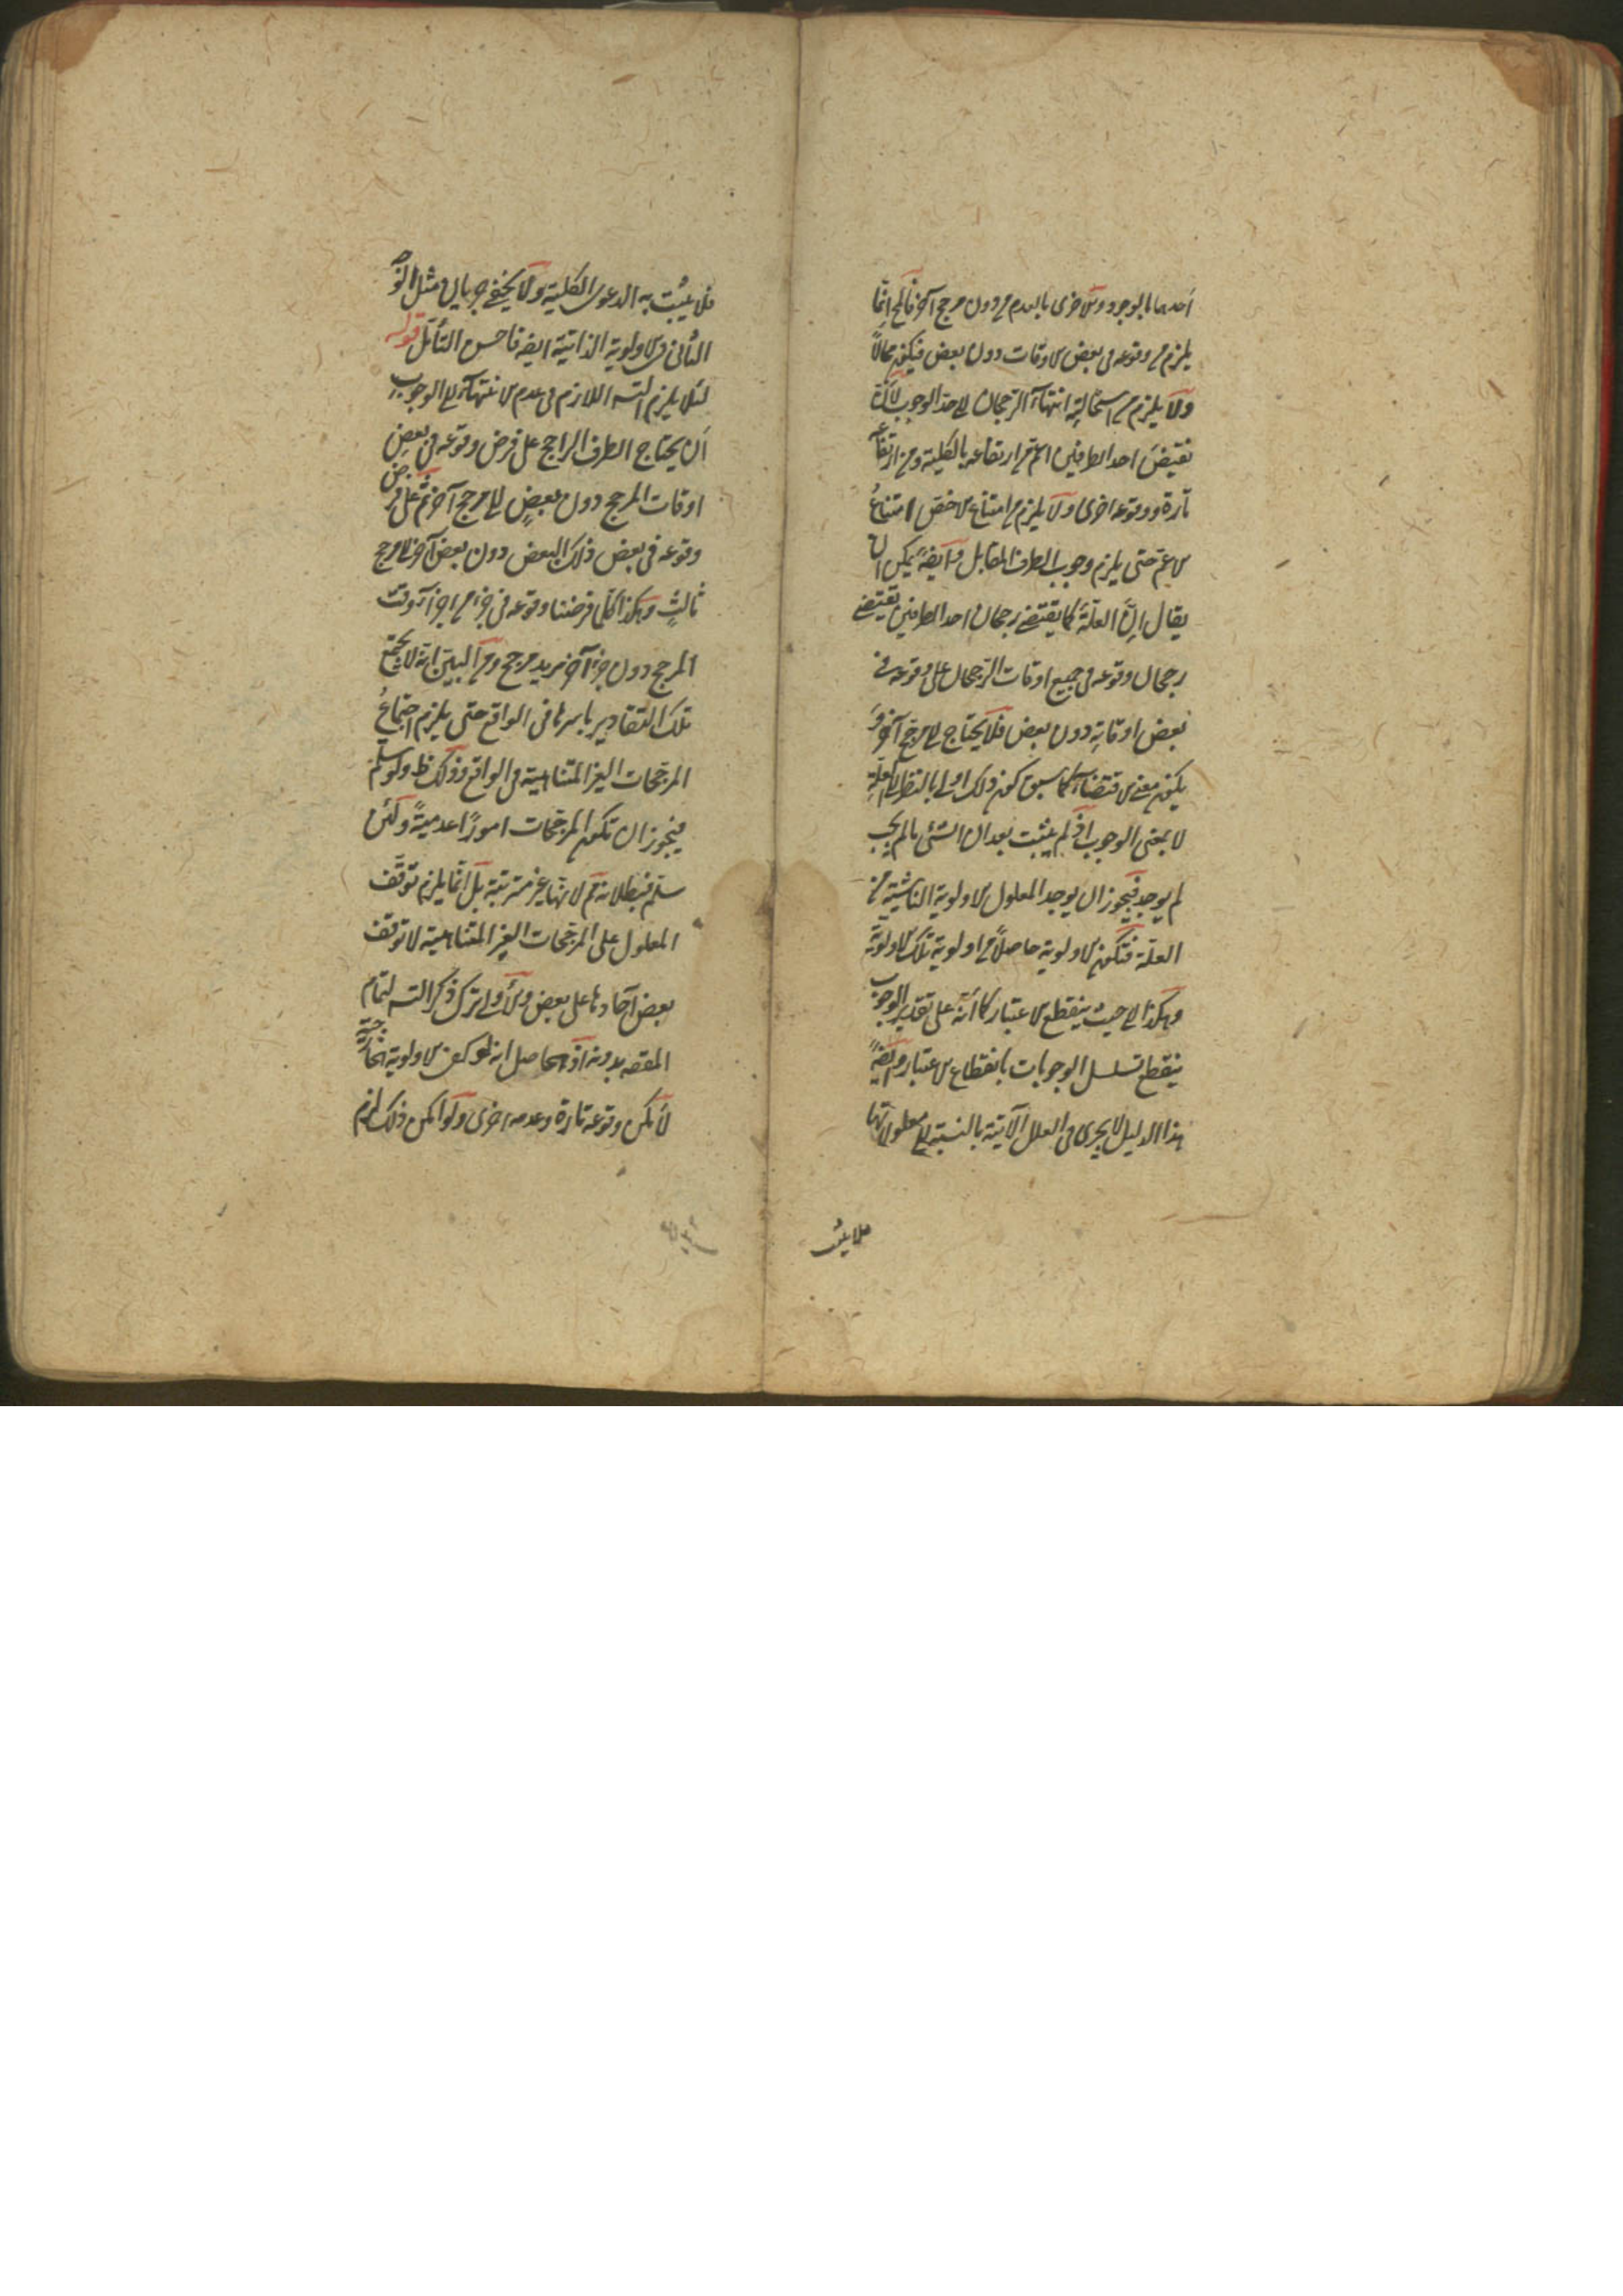 احدهما بالوجود والاخرى بالعدم من دون مرجح آخر فالمح انما
يلزم من وقوعه فى بعض الاوقات دون بعض فيكون محالاً
ولا يلزم من استحالته انتهاء الرجحان الى حد الوجوب لانّ
نقيض احد الطرفين اعم من ارتفاعه بالكلية ومن ارتفاعه
تارة ووقوعه اخرى ولا يلزم من امتناع الاخص امتناعُ
الاعم حتى يلزم وجوب الطرف المقابل وايضاً يمكن ان
يقال انّ العلّة كما يقتضى رجحان احد الطرفين يقتضى
رجحان وقوعه فى جميع اوقات الرجحان على وقوعه فى
بعض اوقاته دون بعض فلا يحتاج الى مرجح آخر و
يكون معنى الاقتضاء كما سبق كون ذلك اولى بالنظر الى العلّة
لا بمعنى الوجوب اذ لم يثبت بعد ان الشئ ما لم يجب
لم يوجد فيجوز ان يوجد المعلول بالاولوية الناشية من
العلّة فتكون الاولوية حاصلاً من اولوية تلك الاولويّة
وهكذا الى حيث ينقطع الاعتبار كما أنّه على تقدير الوجوب
ينقطع تسلسل الوجوبات بانقطاع الاعتبار وايضاً
هذا الدليل لا يجرى فى العلل الآنية بالنسبة الى معلولاتها
فلا يثبت
فلا يثبت به الدعوى الكلية ولا يخفى جريان مثل الوجه
الثانى فى الاولوية الذاتية ايضه فاحسن التأمّل قوله
لئلا يلزم التسـ اللازم فى عدم الانتهاء الى الوجوب
ان يحتاج الطرف الراجح على فرض وقوعه فى بعض
اوقات المرجح دون بعضٍ الى مرجح آخر ثم على فرض
وقوعه فى بعض ذلك البعض دون بعض آخر الى مرجح
ثالثٍ وهكذا كلما فرضنا وقوعه فى جزء من اجزاء وقت
المرجح دون جزء آخر يزيد مرجح ومن البيّن انه لا يجتمع
تلك التقادير باسرها فى الواقع حتى يلزم اجتماعُ
المرجّحات الغير المتناهية فى الواقع وذلك ظ ولو سلّم
فيجوز ان تكون المرجّحات اموراً عدميةً ولئن
سلّم فبطلانه مم لانّها غير مترتبة بل انّما يلزم توقّف
المعلول على المرجّحات الغير المتناهية لا توقف
بعض آحادها على بعض والأولى ترك ذكر التسـ لتمام
المقصـ بدونه اذ الحاصل انه لو كفى الاولوية الخارجيّة
لأمكن وقوعه تارة وعدمه اخرى ولو امكن ذلك لزم